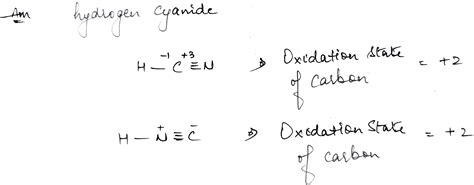 Ans hydrogen cyanide
-1 +3
H - C ≡ N ⇒ Oxidation State of carbon = +2
+ -
H - N ≡ C ⇒ Oxidation State of carbon = +2